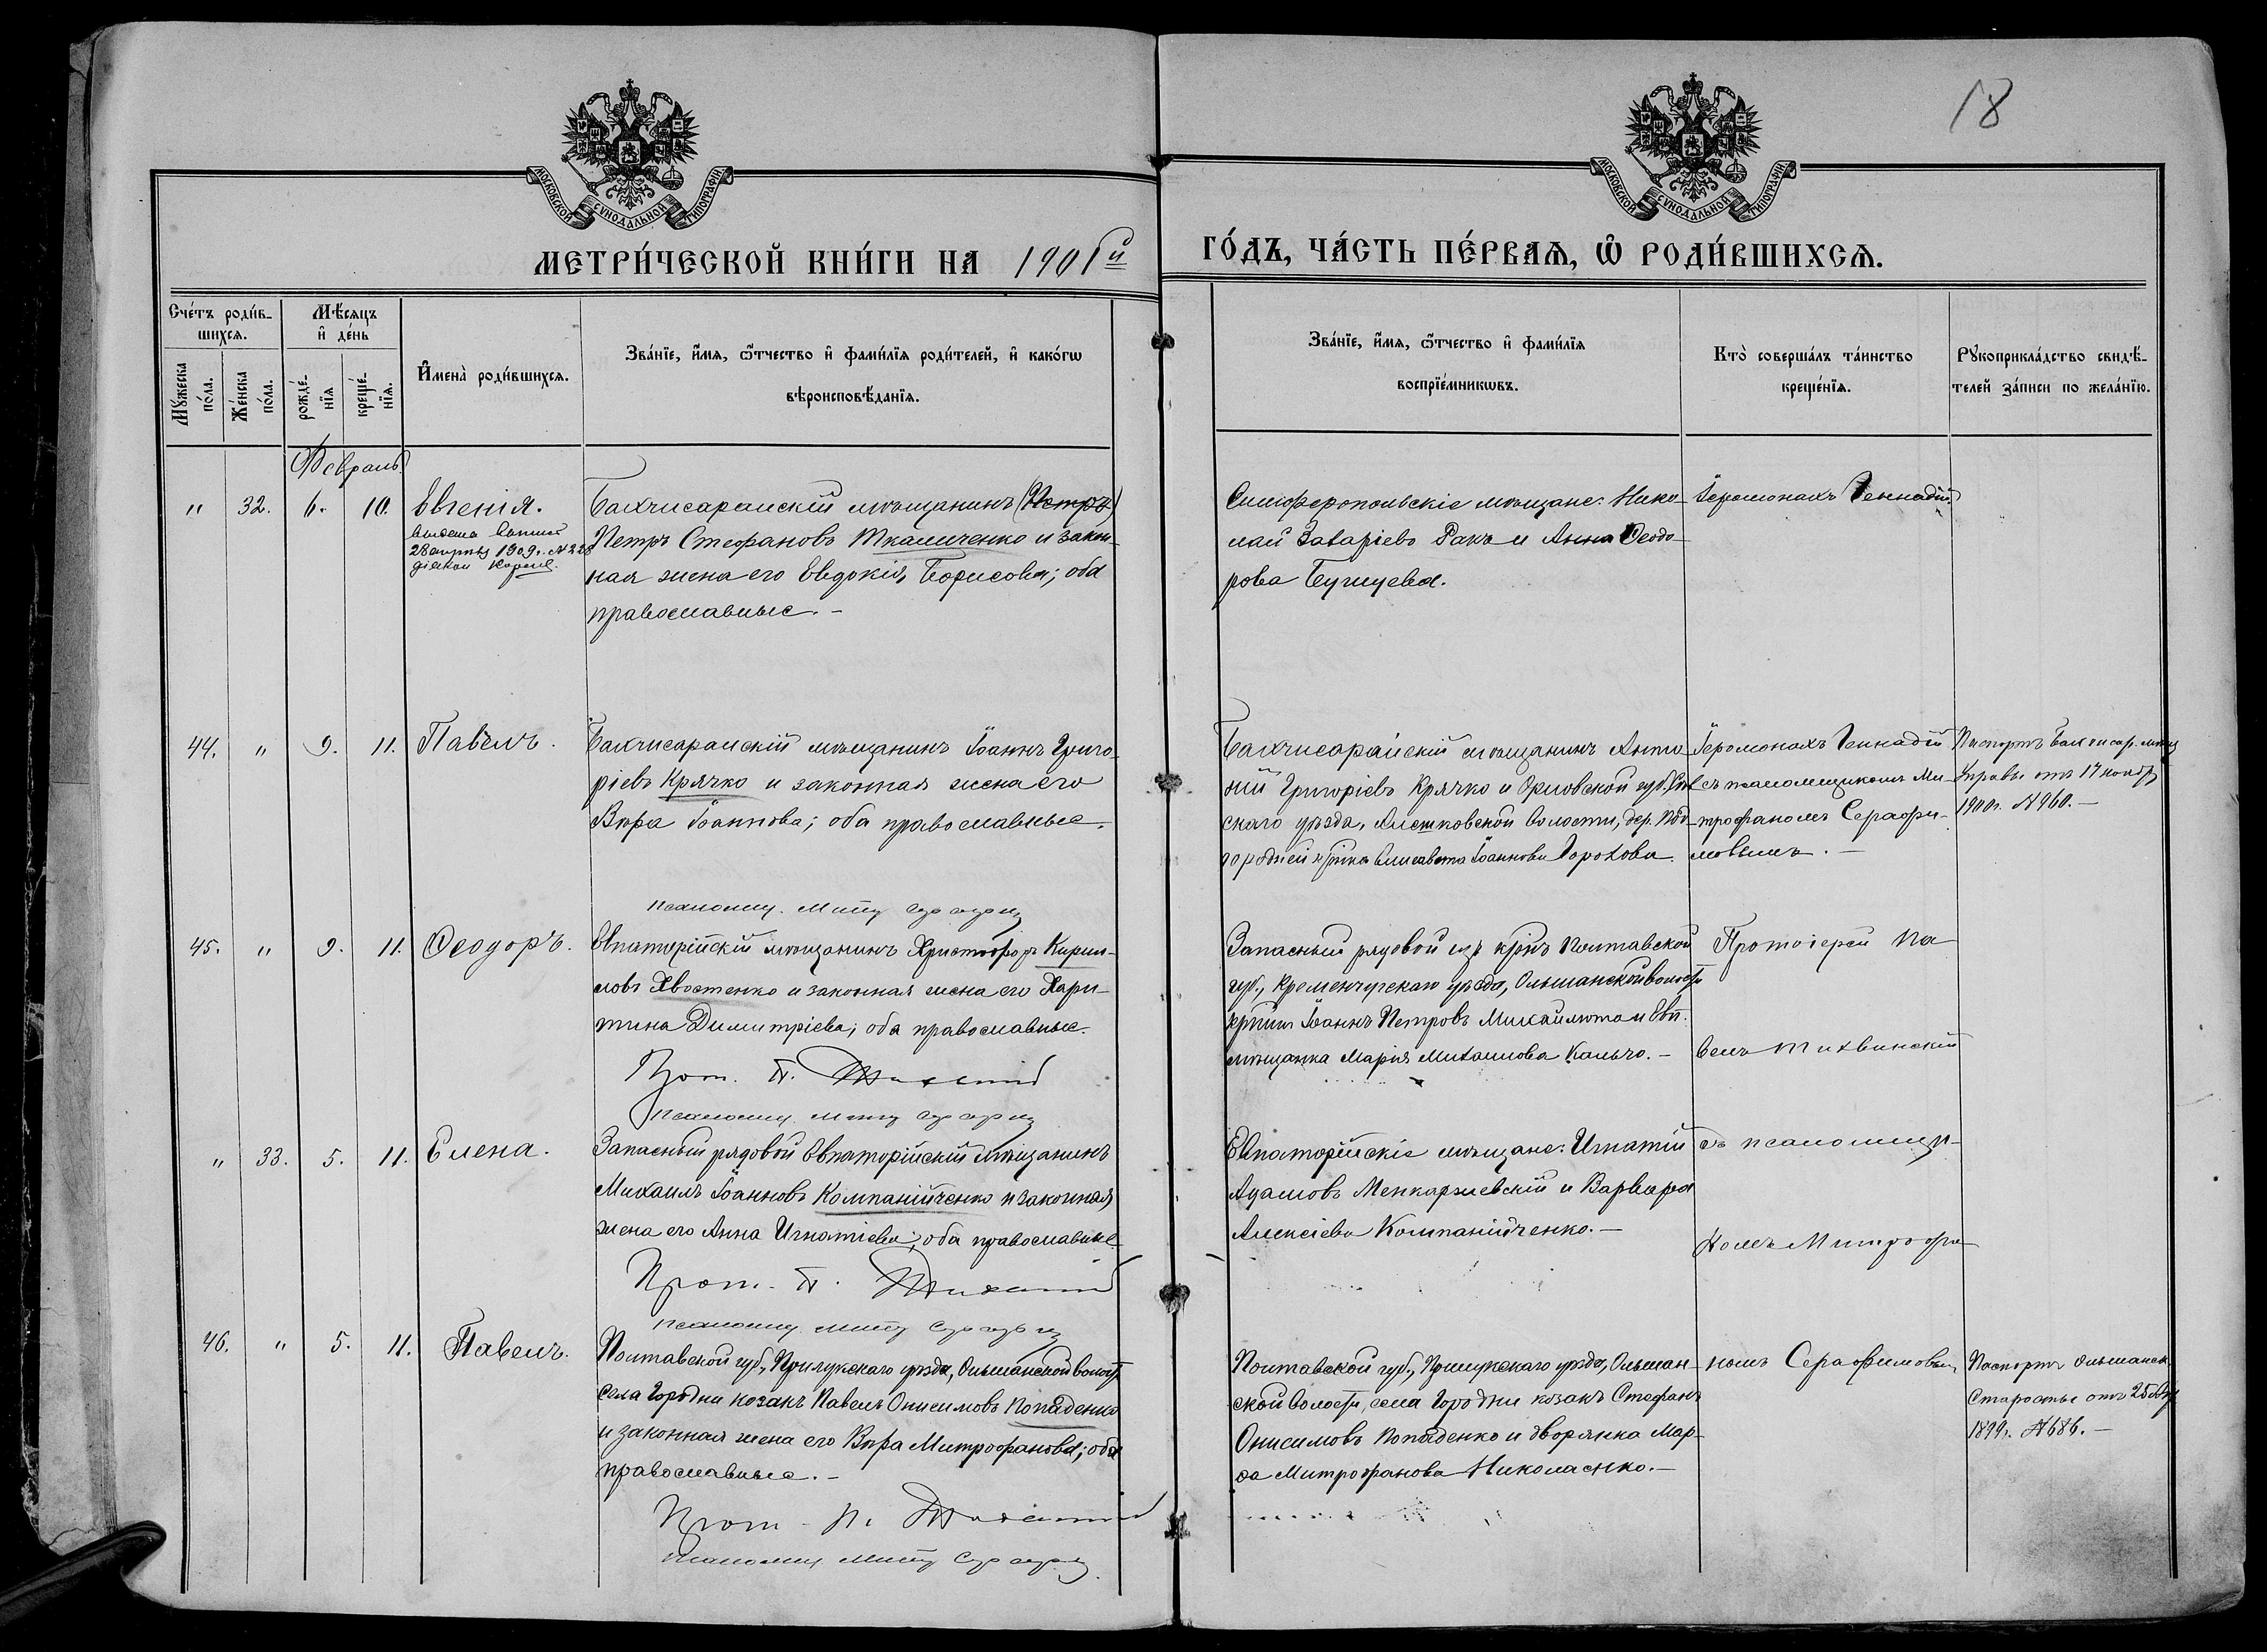 18
МОСКОВСКОЙ СУНОДАЛЬНОЙ ТИПОГРАФІИ
МОСКОВСКОЙ СУНОДАЛЬНОЙ ТИПОГРАФІИ
МЕТРИ́ЧЕСКОЙ КНИ́ГИ НА 1901й
ГО́ДЪ, ЧА́СТЬ ПЕ́РВАѦ, Ѡ РОДИ́ВШИХСѦ.
Сче́тъ роди́в-
шихсѧ.
Мѣ́сѧцъ
и҆ де́нь
Мꙋ́жеска
по́ла.
Же́нска
по́ла.
рожде́-
нїѧ
креще́-
нїѧ.
И҆мена̀ роди́вшихсѧ.
Зва́нїе, и҆́мѧ, ѻ҆́тчество и҆ фами́лїѧ роди́телей, и҆ како́гѡ
вѣроисповѣ́данїѧ.
Зва́нїе, и҆́мѧ, ѻ҆́тчество и҆ фами́лїѧ
воспрїе́мникѡвъ.
Кто̀ соверша́лъ та́инство
креще́нїѧ.
Рꙋкоприкла́дство свидѣ́-
телей за́писи по жела́нїю.
Февраль
" 32. 6. 10. Евгенія.
28 1909 г. №
Бахчисарайскій мѣщанинъ (Петръ)
Петръ Стефановъ Ткаличенко и закон-
ная жена его Евдокія Борисова; оба
православные. -
Симферопольскіе мѣщане: Нико-
лай Захаріевъ Ракъ и Анна Ѳеодо-
рова Бугущева.
Іеромонахъ Геннадій.
44. " 9. 11. Павелъ.
Бахчисарайскій мѣщанинъ Іоаннъ Григо-
ріевъ Крячко и законная жена его
Вѣра Іоаннова; оба православные.
псаломщ. Митр Серафим
Бахчисарайскій мѣщанинъ Анто-
ній Григоріевъ Крячко и Орловской губ.
скаго уѣзда, волости, дер. Под-
городней Елисавета Іоаннова Горохова.
Іеромонахъ Геннадій
съ псаломщикомъ Ми-
трофаномъ Серафи-
мовымъ. -
Паспортъ Бахчисар. мѣщ
Управы отъ 17 ноября
1900 г. № 960. -
45. " 9. 11. Ѳеодоръ.
Евпаторійскій мѣщанинъ Христофоръ Кирил-
ловъ Хвостенко и законная жена его Хари-
тина Димитріева; оба православные.
Прот. П. Тихвинс
псаломщ. Митр Серафим
Запасный рядовой изъ крѣнъ Полтавской
губ., Кременчугскаго уѣзда, Ольшанской волости
Іоаннъ Петровъ Михайлюта и Евп.
мѣщанка Марія Михаилова Кальчо. -
Протоіерей Па-
велъ Тихвинскій
" 33. 5. 11. Елена.
Запасный рядовой Евпаторійскій мѣщанинъ
Михаилъ Іоанновъ Компанійченко и законная
жена его Анна Игнатіева; оба православные
Прот. П. Тихвинс
псаломщ. Митр Серафим
Евпаторійскіе мѣщане: Игнатій
Адамовъ Менкаржевскій и Варвара
Алексіева Компанійченко. -
съ псаломщи-
комъ Митрофа-
46. " 5. 11. Павелъ.
Полтавской губ., Прилукскаго уѣзда, Ольшанской волости
села Городни козакъ Павелъ Онисимовъ Попаденко
и законная жена его Вѣра Митрофанова; оба
православные. -
Прот. П. Тихвинс
псаломщ. Митр Серафим
Полтавской губ., Прилукскаго уѣзда, Ольшан-
ской волости, села Городни козакъ Стефанъ
Онисимовъ Попаденко и дворянка Мар-
ѳа Митрофанова Николаенко. -
номъ Серафимовым
Паспортъ Ольшанск.
Старосты отъ 25
1899 г. № 686. -